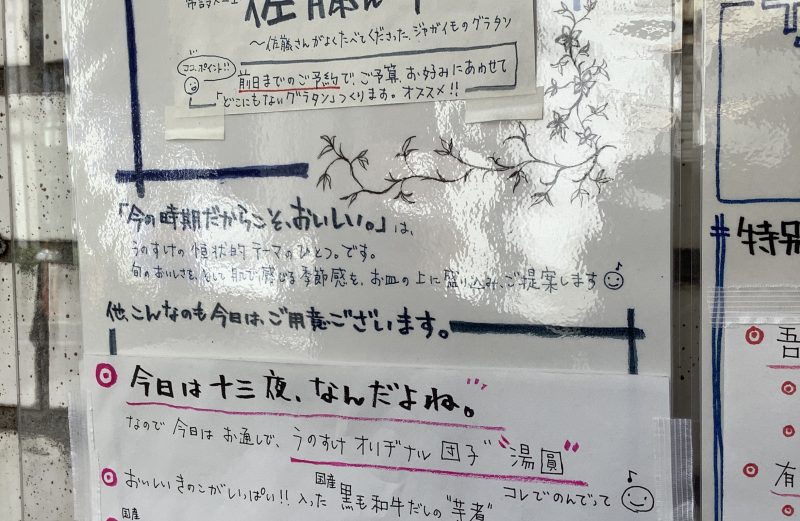 佐藤
〜佐藤さんがよくたべてくださった、ジャガイモのグラタン
ココ、ポイント!!
前日までのご予約で、ご予算、お好みにあわせて
「どこにもないグラタン」つくります。オススメ!!
「今の時期だからこそ、おいしい。」は、
うのすけの恒状的テーマのひとつ。です。
旬のおいしさを、そして肌で感じる季節感を、お皿の上に盛り込み、ご提案します
他、こんなのも今日は、ご用意ございます。
今日は十三夜、なんだよね。
なので今日はお通しで、うのすけオリヂナル団子"湯圓"
おいしいきのこがいっぱい!!入った国産黒毛和牛だしの"芋煮"コレでのんでって
国産
特別
吾
有